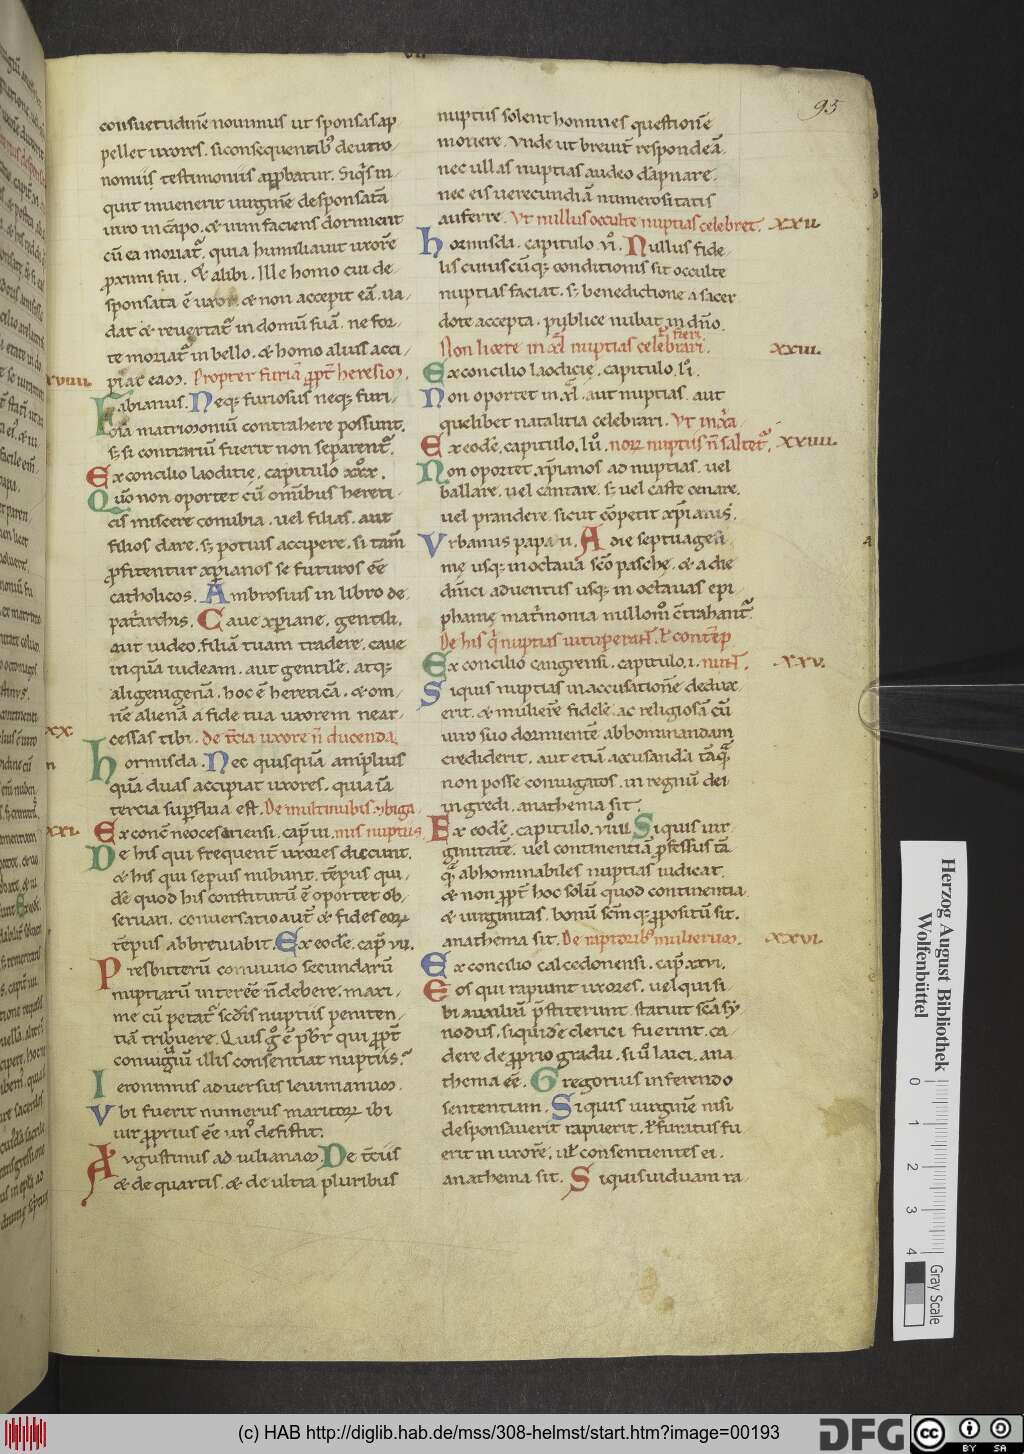 95
consuetudinē nouimus ut sponsas ap
pellet uxores. si consequentib; deutro
nomiis testimoniis app̄batur. Siq̄s in
quit inuenerit uirginē desponsatā
uiro in cāpo. & uim faciens dormierit
cū ea moriat᷑. quia humiliauit uxorē
proximi sui. & alibi. Ille homo cui de
sponsata ē uxor & non accepit eā. ua
dat & reuertat᷑ in domū suā. ne for
te moriat᷑ in bello. & homo alius acci
piat eam. Propter furiā ꝓpt̄ heresim.
XVIIII.
Fabianus. Neq; furiosus neq; furi
osa matrimoniū contrahere possunt.
s; si contrariū fuerit non separent᷑.
Ex concilio laoditię. capitulo xxx.
Qūo non oportet cū omībus hereti
cis miscere conubia. uel filias. aut
filios dare. s; potius accipere. si tam̄
ꝓfitentur xp̄ianos se futuros ēē
catholicos. Ambrosius in libro de
pat̄archis. Caue xp̄iane. gentili.
aut iudeo filiā tuam tradere. caue
inquā iudeam. aut gentilē. atq;
aligenigenā. hoc ē hereticā. & om
nē alienā a fide tua uxorem near
cessas tibi. De t̄cia uxore n̄ ducenda
XX.
Hormisda. Nec quisquā amplius
quā duas accipiat uxores. quia iā
tercia sup̄flua est. De multinubis. & biga
XXI.
Ex conc̄ neocesariensi. cap̄ iii. mis nuptiis.
De his qui frequent̄ uxores dicunt.
& his qui sepius nubunt. tēpus qui
dē quod his constitutū ē oportet ob
seruari. conuersatio aut̄ & fides eoꝝ
tēpus abbreuiabit. Ex eodē. cap̄ vii.
Presbiterū conuiuio secundarū
nuptiarū interēē n̄ debere. maxi
me cū petat᷑ sc̄dis nuptiis peniten
tiā tribuere. Quis gͦ ē pb̄r qui ꝓpt̄
conuigiū illis consentiat nuptiis.
Ieronimus aduersus leuimanum.
Vbi fuerit numerus maritoꝝ ibi
uir ꝓprius ēē un᷒ defistit.
Avgustinus ad iulianam. De t̄ciis
& de quartis. & de ultra pluribus
nuptiis solent homines questionē
mouere. Vnde ut breuit̄ respondeā.
nec ullas nuptias audeo dāpnare.
nec eis uerecundiā numerositatis
auferre. Vt nullus occulte nuptias celebret.
XXII.
Hormisda. capitulo. vi. Nullus fide
lis cuiuscūq; conditionis sit occulte
nuptias faciat. s; benedictione a sacer
dote accepta. publice nubat in dn̄o.
Non licere in xl nuptias celebrari. ł fieri.
XXIII.
Ex concilio laodicię. capitulo. li.
Non oportet in xl. aut nuptias. aut
quelibet natalitia celebrari. Vt in xp̄a
Ex eodē. capitulo. lii. noꝝ nuptiis n̄ saltet᷑.
XXIIII.
Non oportet. xp̄ianos ad nuptias. uel
ballare. uel cantare. s; uel caste cenare.
uel prandere. sicut cōpetit xp̄ianis.
Vrbanus papa ii. A die septuagesi
mę usq; in octauā scō paschę. & a die
dn̄ici aduentus usq; in octauas epi
phanię mat̄monia nullom̊ c̄trahant᷑.
De his q̄ nuptias uituperant. ł contēp
Ex concilio cangrensi. capitulo. i. nunt.
XXV.
Siquis nuptias in accusationē dedux
erit. & mulierē fidelē. ac religiosā cū
uiro suo dormientē abhominandam
crediderit. aut etiā accusandā tāquā
non posse coniugatos. in regnū dei
ingredi. anathema sit.
Ex eodē. capitulo. viiii. Siquis uir
ginitatē. uel continentiā ꝓfessus tā
quā abhominabiles nuptias iudicat.
& non ꝓpt̄ hoc solū quod continentia
& uirginitas. bonū scm̄ q; ꝓpositū sit.
anathema sit. De raptorib; mulierum.
XXVI.
Ex concilio calcedonensi. cap̄ xxvi.
Eos qui rapiunt uxores. uel qui si
bi auxiliū p̄stiterunt. statuit sc̄a sy
nodus. siquidē clerici fuerint. ca
dere de ꝓprio gradu. si u̅ laici. ana
thema ēē. Gregorius inferendo
sententiam. Siquis uirginē nisi
desponsauerit rapuerit. ł furatus fu
erit in uxorē. uł consentientes ei.
anathema sit. Siquis uiduam ra
Herzog August Bibliothek
Wolfenbüttel
0 1 2 3 4
Gray Scale
(c) HAB http://diglib.hab.de/mss/308-helmst/start.htm?image=00193
DFG
cc BY SA